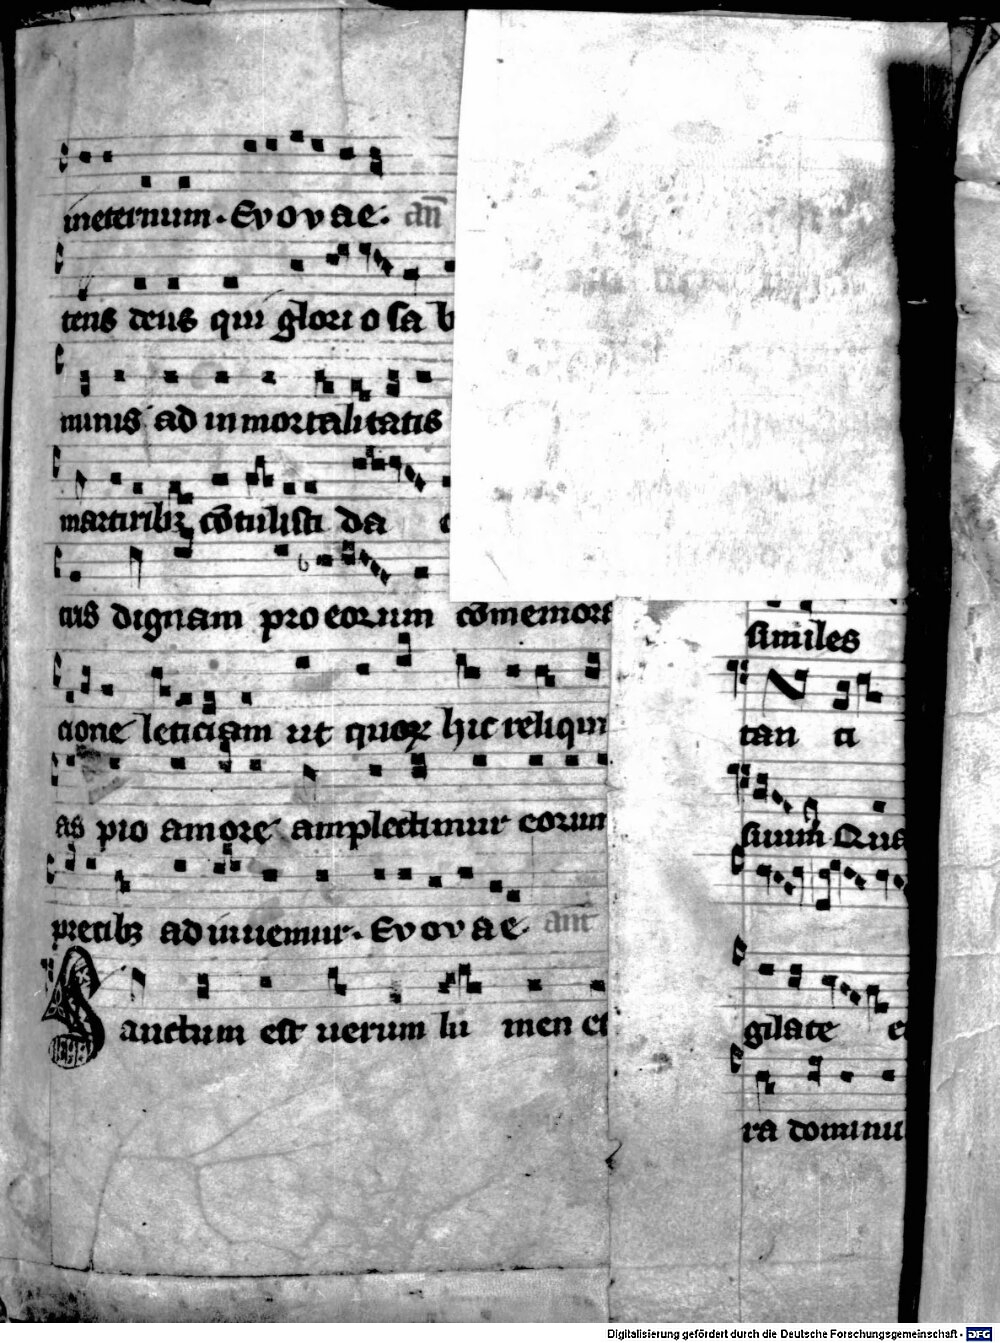 ineternum. Evovae. añ
tens deus qui glori o sa b
minis ad inmortalitatis
martiribꝫ cōtulisti da
cus dignam pro eorum cōmemora
cione leticiam ut quoꝝ hic reliqui
as pio amore amplectimur eorum
precibꝫ adiuuemur. Evovae ant
Sanctum est uerum lu men et
similes
tan ti
suum Qua
gilate e
ra dominu
Digitalisierung gefördert durch die Deutsche Forschungsgemeinschaft - DFG